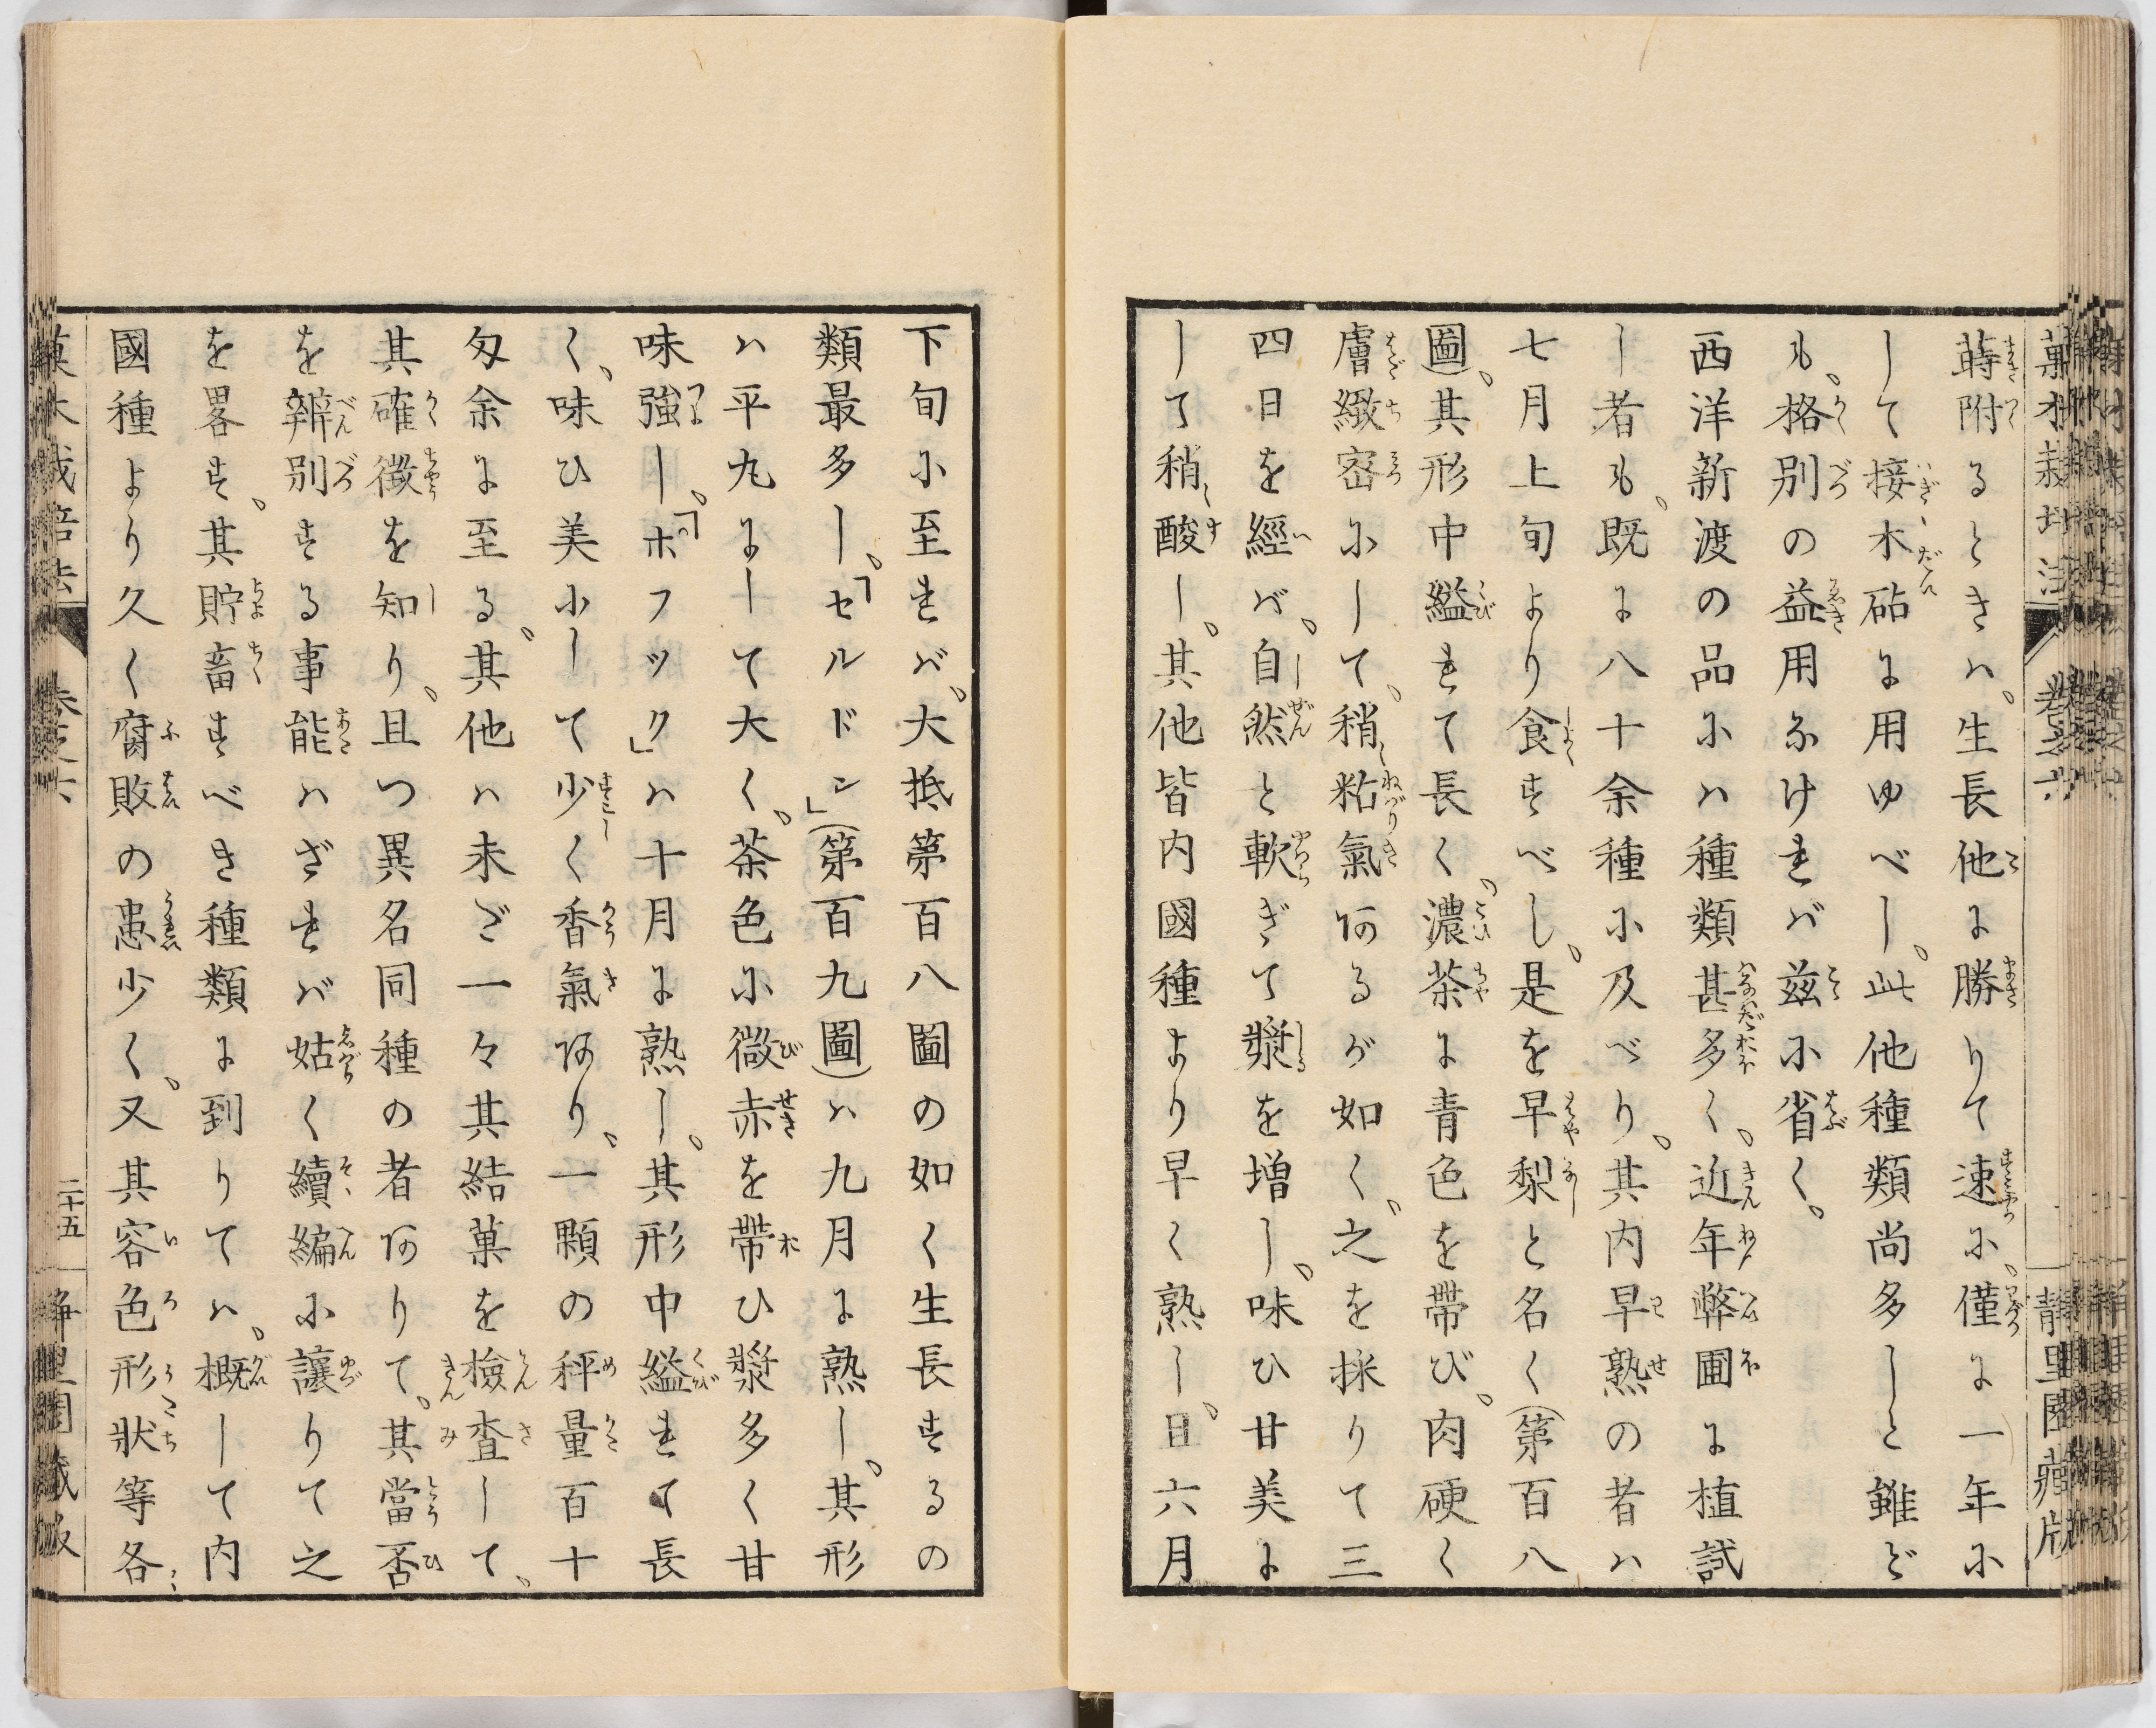 蒔附るときハ、生長他に勝りて速に、僅に一年に
して接木砧に用ゆべし、此他種類尚多しと雖ど
も、格別の益用なけれバ茲に省く、
西洋新渡の品にハ種類甚多く、近年弊圃に植試
し者も、既に八十余種に及べり、其内早熟の者ハ
七月上旬より食すべし、是を早梨と名く(第百八
圖)、其形中縊れて長く、濃茶に青色を帶び、肉硬く
膚緻密にして、稍粘氣あるが如く、之を採りて三
四日を經バ、自然と軟ぎて漿を増し、味ひ甘美に
して稍酸し、其他皆内國種より早く熟し、且六月
下旬に至れバ、大抵第百八圖の如く生長するの
類最多し、「セルドン」(第百九圖)ハ九月に熟し、其形
ハ平丸にして大く、茶色に微赤を帶ひ漿多く甘
味強し、「ホフツック」ハ十月に熟し、其形中縊れて長
く、味ひ美にして少く香氣あり、一顆の秤量百十
匁余に至る、其他ハ未ざ一々其結菓を檢査して、
其確徴を知り、且つ異名同種の者ありて、其當否
を辨別する事能ハざれバ姑く續編に讓りて之
を畧す、其貯畜すべき種類に到りてハ、概して内
國種より久く腐敗の患少く、又其容色形状等各
菓木栽培法 卷之六 二十五 静里園藏版